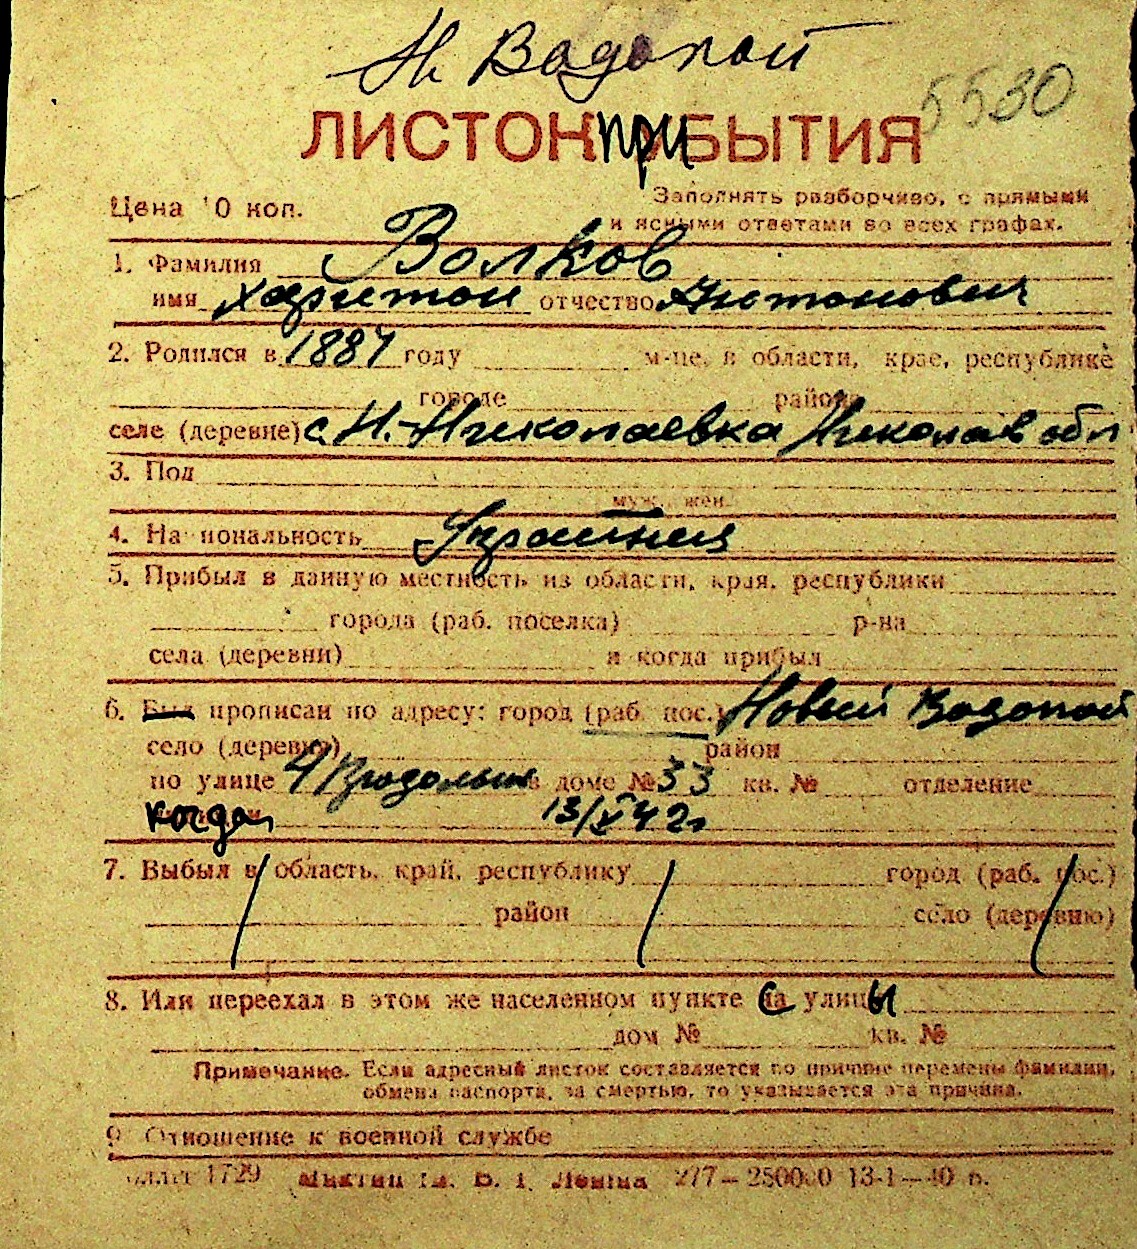 Н. Водопой
5530
ЛИСТОК ПРИБЫТИЯ
Цена 10 коп.
Заполнять разборчиво, с прямыми
и ясными ответами во всех графах.
1. Фамилия Волков
имя Харитон отчество Антонович
2. Родился в 1887 году м-це, в области, крае, республике
городе районе
селе (деревне) с. Н.-Николаевка Николаев обл
3. Пол
муж., жен.
4. Национальность Украинец
5. Прибыл в данную местность из области, края, республики
города (раб. поселка) р-на
села (деревни) и когда прибыл
6. Был прописан по адресу: город (раб. пос.) Новый Водопой
село (деревня) район
по улице 4 Продольная в доме № 33 кв. № отделение
когда 13/X 42 г.
7. Выбыл в область, край, республику город (раб. пос.)
район село (деревню)
8. Или переехал в этом же населенном пункте с улицы
дом № кв. №
Примечание. Если адресный листок составляется по причине перемены фамилии,
обмена паспорта, за смертью, то указывается эта причина.
9. Отношение к военной службе
1729 Ленина 277—250000 13-1—40 г.